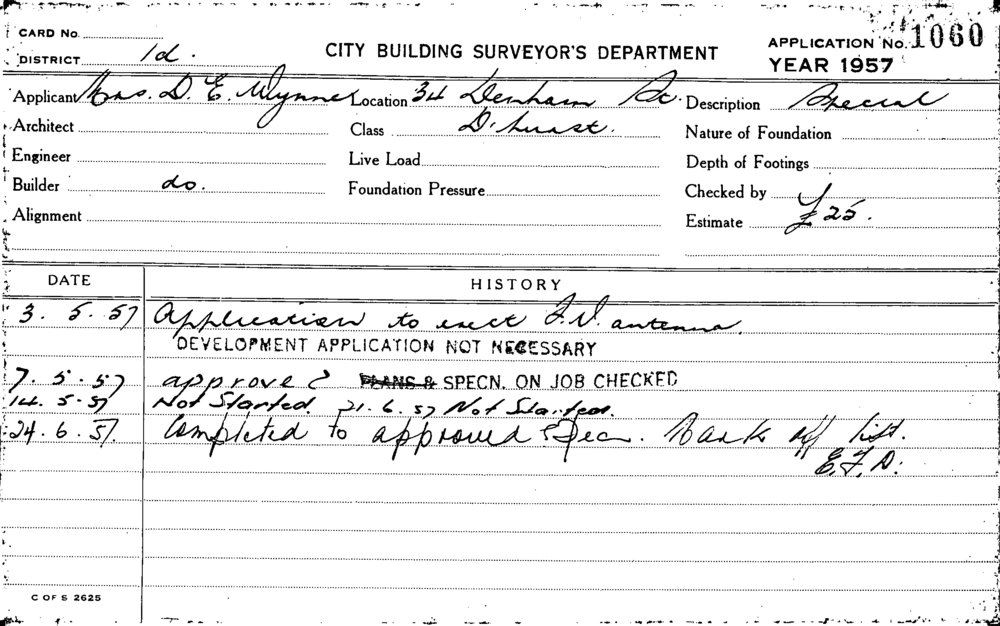 CARD No.
DISTRICT 1d. CITY BUILDING SURVEYOR'S DEPARTMENT APPLICATION No. 1060
YEAR 1957
Applicant Mrs. D. E. Wynne Location 34 Denham St. Description Special
Architect Class D'hurst. Nature of Foundation
Engineer Live Load Depth of Footings
Builder do. Foundation Pressure Checked by
Alignment Estimate £25.
DATE HISTORY
3. 5. 57 Application to erect T.V. antenna.
DEVELOPMENT APPLICATION NOT NECESSARY
7. 5. 57 approved PLANS & SPECN. ON JOB CHECKED
14. 5. 57 Not Started. 21. 6. 57 Not Started.
24. 6. 57. Completed to approved Specn. Mark off list.
E.F.D.
C OF S 2625